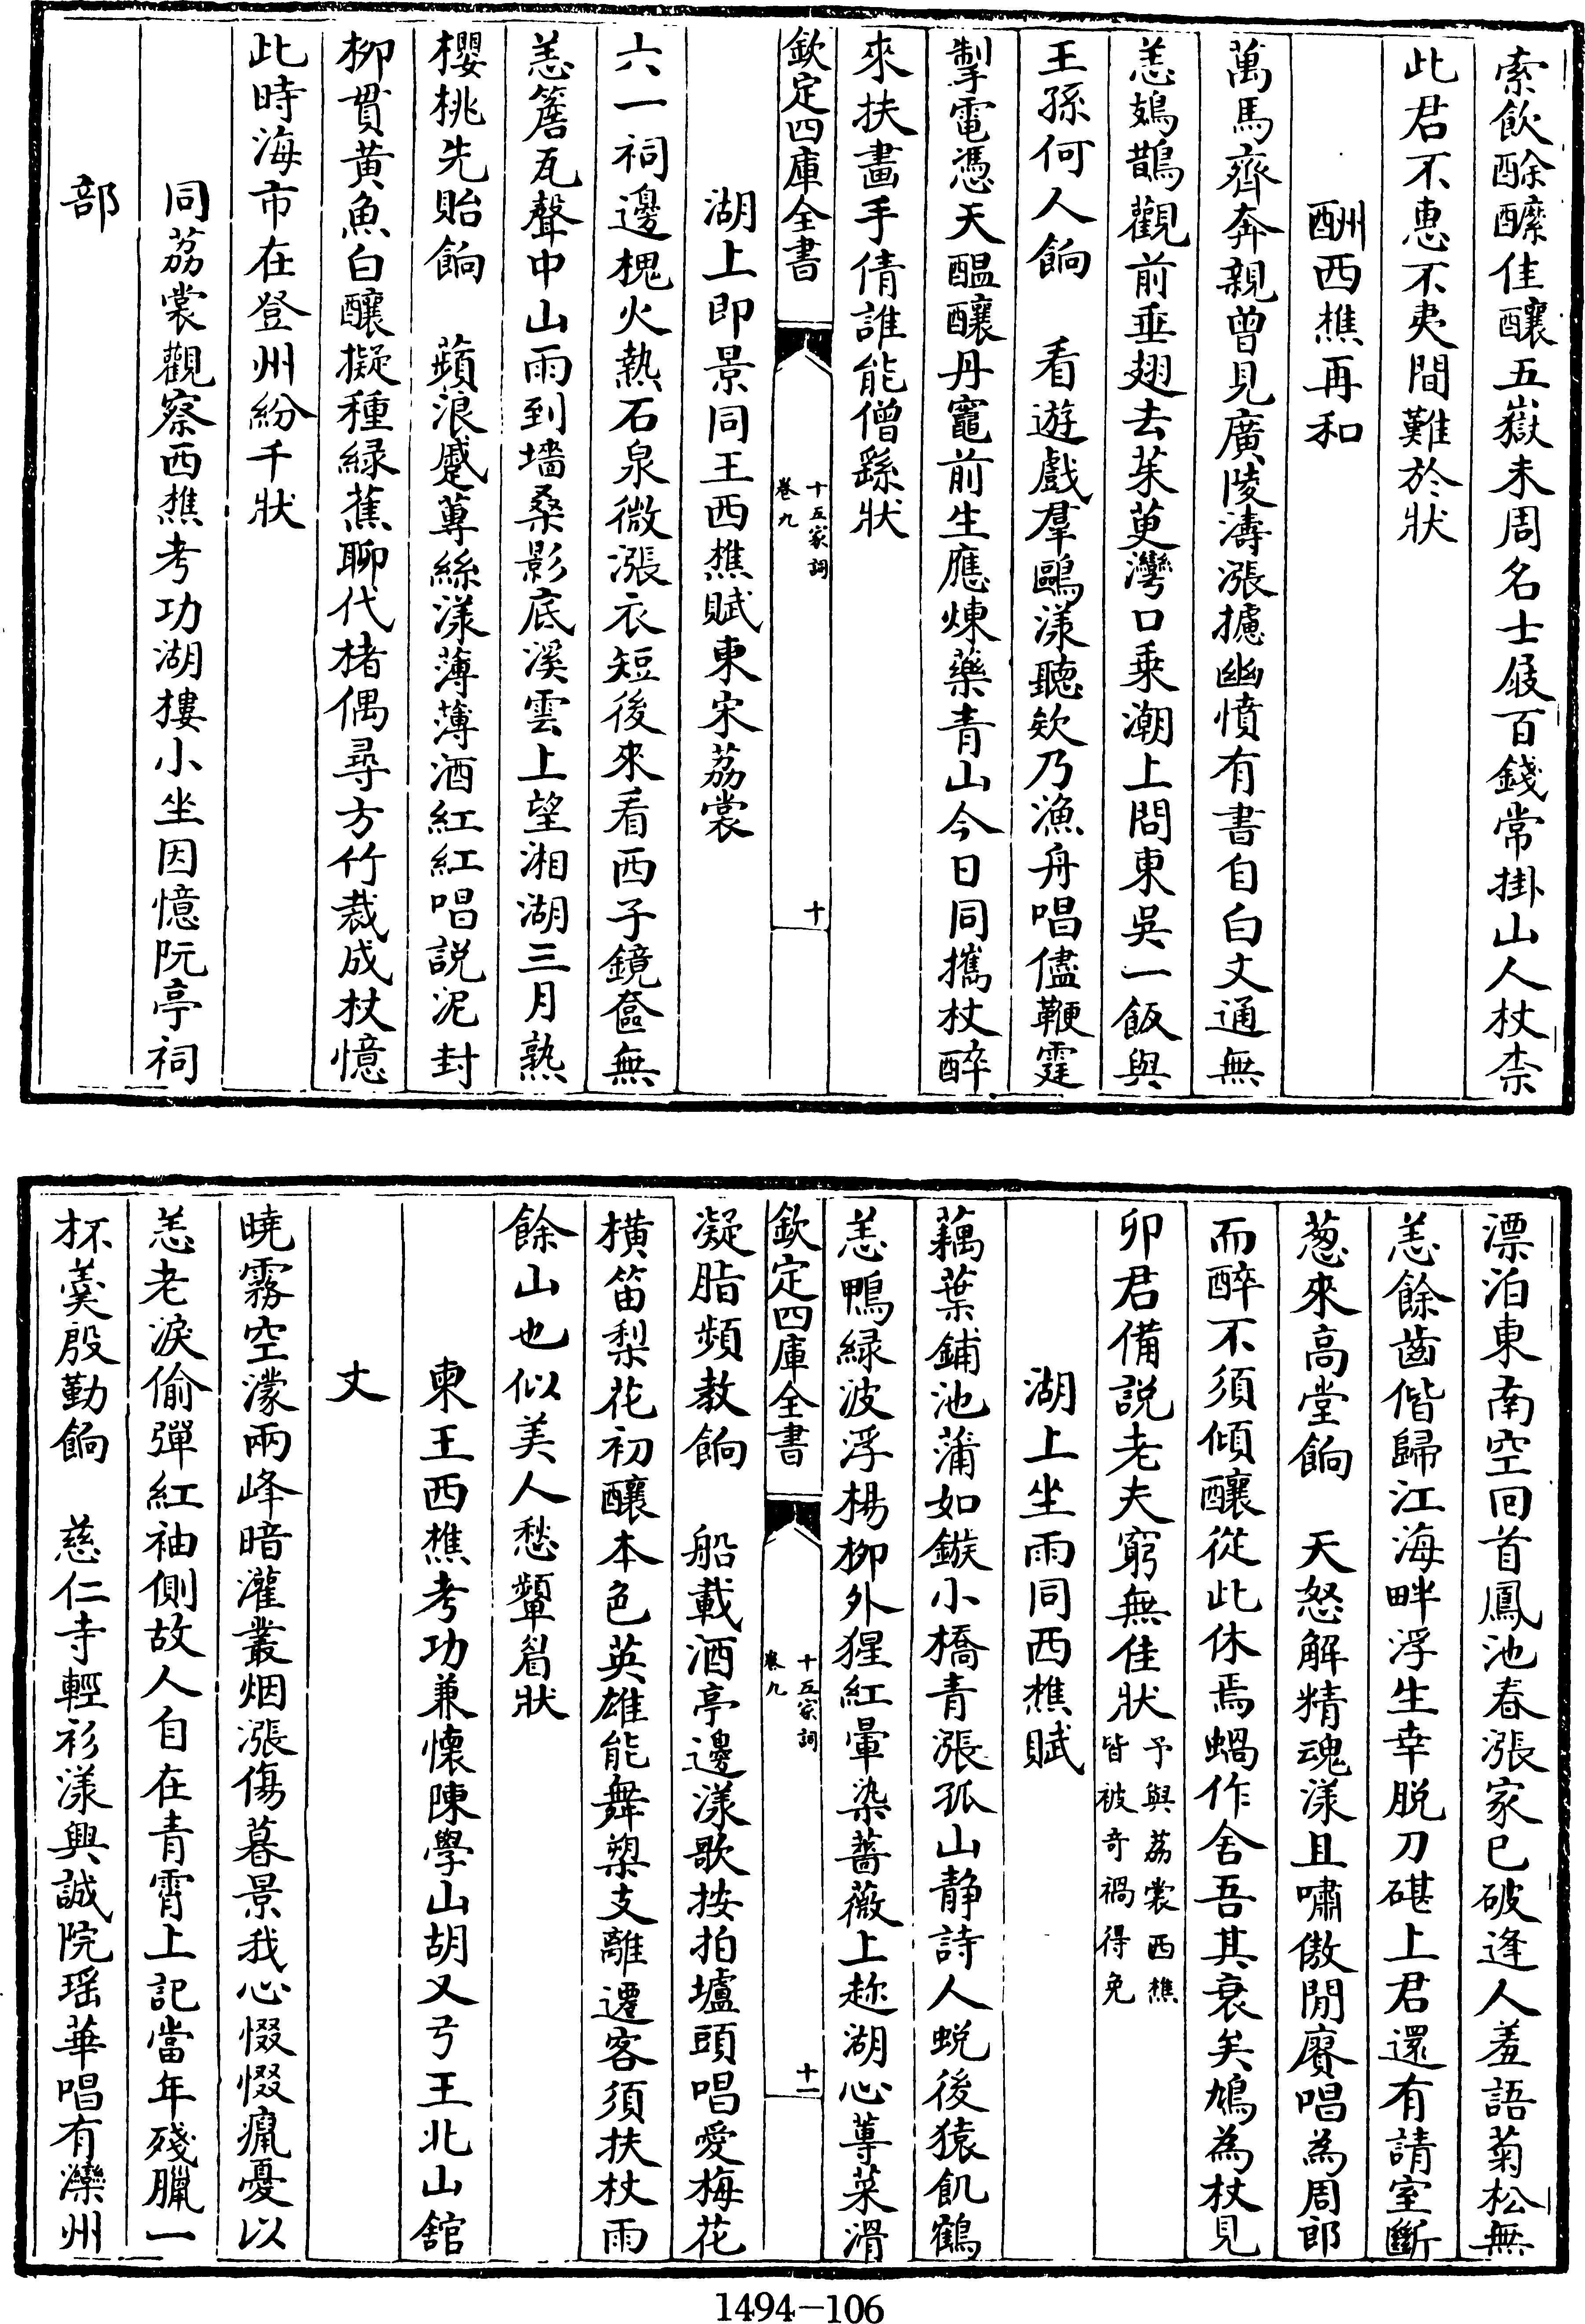 索飲酴醾佳釀五嶽未周名士屐百錢常掛山人杖柰
此君不惠不夷間難於狀
酬西樵再和
萬馬齊奔親曾見廣陵濤漲攄幽憤有書自白文通無
恙鳷鵲觀前垂翅去茱萸灣口乘潮上問東吳一飯與
王孫何人餉　看遊戲羣鷗漾聽欸乃漁舟唱儘鞭霆
掣電憑天醖釀丹竈前生應煉藥青山今日同攜杖醉
來扶畫手倩誰能僧繇狀
欽定四庫全書
十五家詞
卷九
十
湖上即景同王西樵賦東宋荔裳
六一祠邊槐火熱石泉微漲衣短後來看西子鏡奩無
恙簷瓦聲中山雨到墻桑影底溪雲上望湘湖三月熟
櫻桃先貽餉　蘋浪蹙蓴絲漾薄薄酒紅紅唱説泥封
柳貫黄魚白釀擬種緑蕉聊代楮偶尋方竹裁成杖憶
此時海市在登州紛千狀
同荔裳觀察西樵考功湖摟小坐因憶阮亭祠
部
漂泊東南空回首鳳池春漲家已破逢人羞語菊松無
恙餘齒偕歸江海畔浮生幸脱刀碪上君還有請室斷
葱來高堂餉　天怒解精魂漾且嘯傲閒賡唱為周郎
而醉不須傾釀從此休焉蝸作舍吾其衰矣鳩為杖見
卯君備説老夫窮無佳狀予與荔裳西樵
皆被奇禍得免
湖上坐雨同西樵賦
藕葉鋪池蒲如鏃小橋青漲孤山静詩人蜕後猿飢鶴
恙鴨緑波浮楊柳外猩紅暈染薔薇上趂湖心蓴菜滑
欽定四庫全書
十五家詞
卷九
十一
凝脂頻教餉　船載酒亭邊漾歌按拍壚頭唱愛梅花
横笛梨花初釀本色英雄能舞槊支離遷客須扶杖雨
餘山也似美人愁顰眉狀
柬王西樵考功兼懷陳學山胡又弓王北山舘
丈
曉霧空濛兩峰暗灌叢烟漲傷暮景我心惙惙癙憂以
恙老淚偷彈紅袖側故人自在青霄上記當年殘臘一
杯羮殷勤餉　慈仁寺輕衫漾興誠院瑶華唱有灤州
1494—106